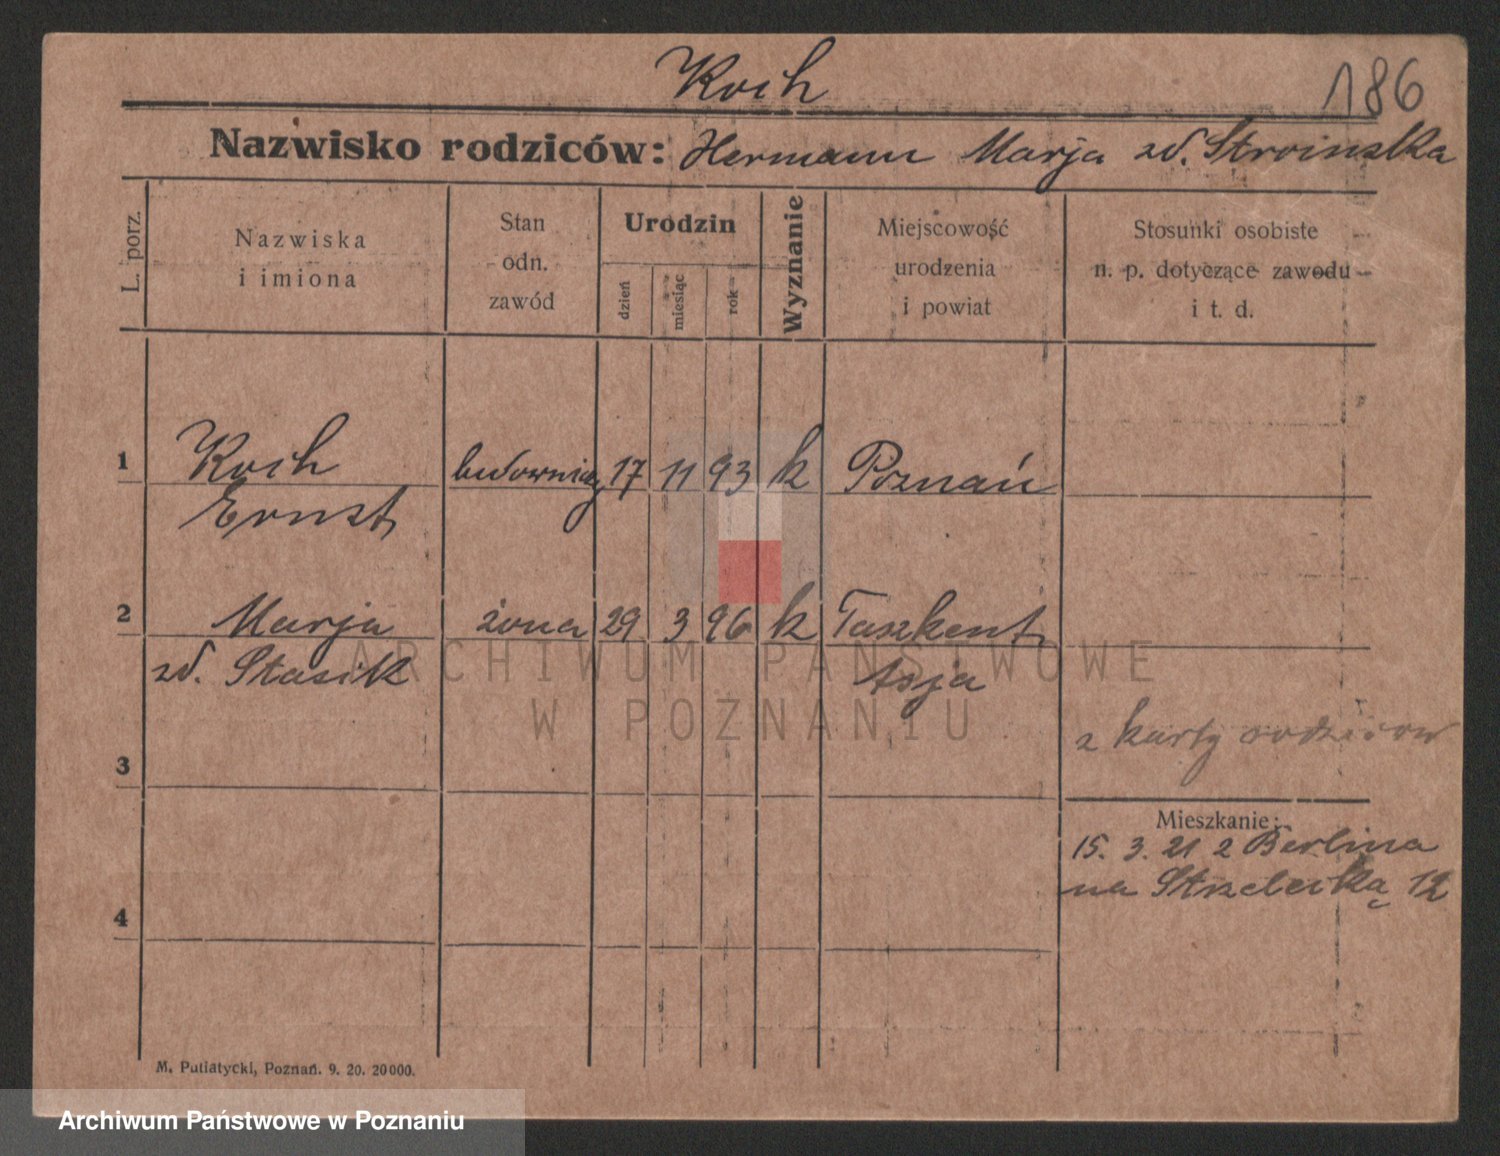 Koch
186
Nazwisko rodziców: Hermann Marja zd. Stroinska
L. porz.
Nazwiska
i imiona
Stan
odn.
zawód
Urodzin
dzień
miesiąc
rok
Wyznanie
Miejscowość
urodzenia
i powiat
Stosunki osobiste
n. p. dotyczące zawodu
i t. d.
1 Koch budowniczy 17 11 93 k Poznań
Ernst
2 Marja żona 29 3 96 k Taszkent
zd. Stasik Asja
ARCHIWUM PAŃSTWOWE
W POZNANIU
z karty rodziców
3
Mieszkanie:
15. 3. 21 z Berlina
na Strzelecką 12
4
M. Putiatycki, Poznań. 9. 20. 20000.
Archiwum Państwowe w Poznaniu